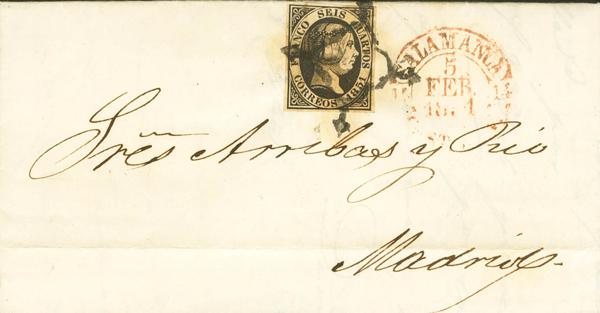 FRANCO SEIS CUARTOS
CORREOS 1851
SALAMANCA
5
FEB
Sres Arribas y Rio
Madrid